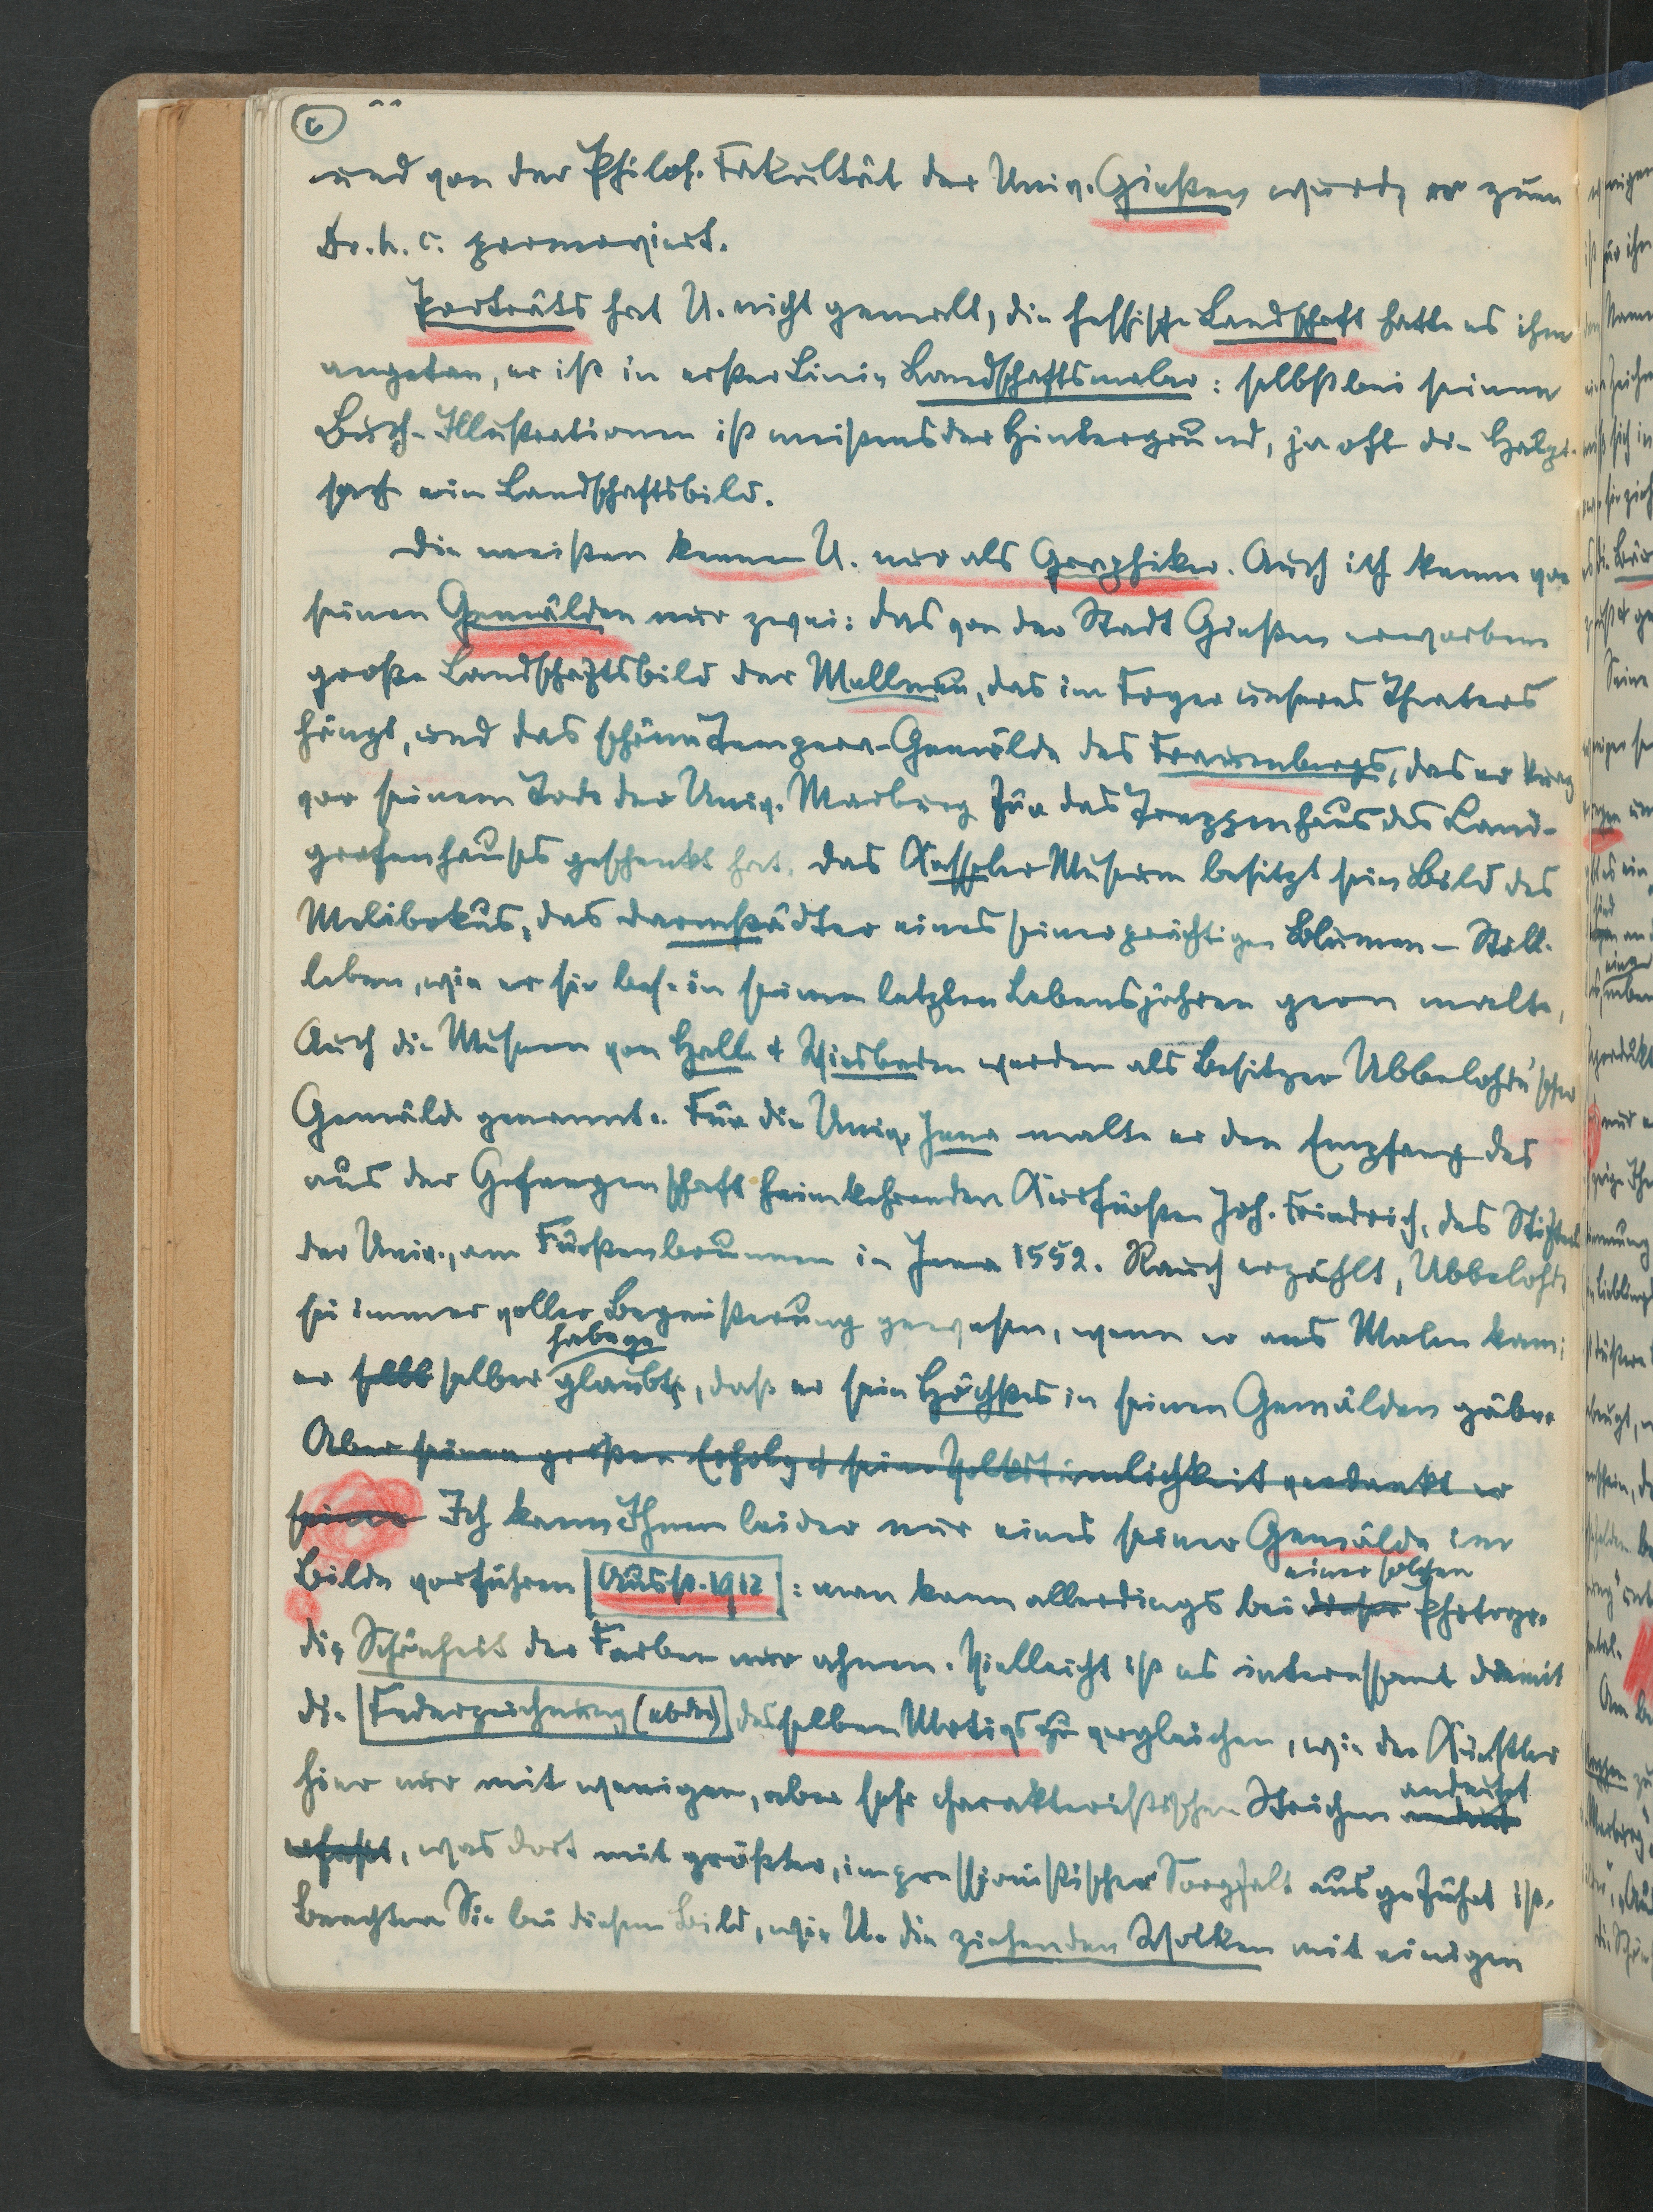 6
und von der Philos. Fakultät der Univ. Gießen wurde er zum
Dr. h. c. promoviert.
Porträts hat U. nicht gemalt, die hessische Landschaft hatte es ihm
angetan, er ist in erster Linie Landschaftsmaler: selbst bei seinen
Buch-Illustrationen ist meistens der Hintergrund, ja oft die Haupt-
sach ein Landschaftsbild.
Die meisten kennen U. nur als Graphiker. Auch ich kenne von
seinen Gemälden nur zwei: das von der Stadt Gießen erworbene
große Landschaftsbild der Mellnau, das im Foyer unseres Theaters
hängt, und das schöne Tempera-Gemälde des Frauenbergs, das er kurz
vor seinem Tode der Univ. Marburg für das Treppenhaus des Land-
grafenhauses geschenkt hat. Das Kasseler Museum besitzt sein Bild des
Melibokus, das Darmstädter eines seiner prächtigen Blumen-Still-
leben, wie er sie bes. in seinen letzten Lebensjahren gern malte,
Auch die Museen von Halle & Wiesbaden werden als Besitzer Ubbelohde'scher
Gemälde genannt. Für die Univ. Jena malte er den Empfang des
aus der Gefangenschaft heimkehrenden Kurfürsten Joh. Friedrich, des Stifters
der Univ., am Fürstenbrunnen in Jena 1552. Rauch erzählt, Ubbelohde
sei immer voller Begeisterung gewesen, wenn er ans Malen kam;
habe ge
er selbst selber glaubte, daß er sein Höchstes in seinen Gemälden gäbe.
Aber seinen großen Erfolg & seine Volkstümlichkeit verdankt er
seiner Ich kann Ihnen leider nur eines seiner Gemälde im
einer solchen
Bilde vorführen [Ausst. 1912]: man kann allerdings bei dieser Photogr.
die Schönheit der Farben nur ahnen. Vielleicht ist es interessant damit
die [Federzeichnung (ebda)] desselben Motivs zu vergleichen, wie der Künstler
andeutet
hier nur mit wenigen, aber sehr charakteristischen Strichen andeut
erfaßt, was dort mit größter, impressionistischer Sorgfalt ausgeführt ist.
Beachten Sie bei diesem Bild, wie U. die ziehenden Wolken mit einigen